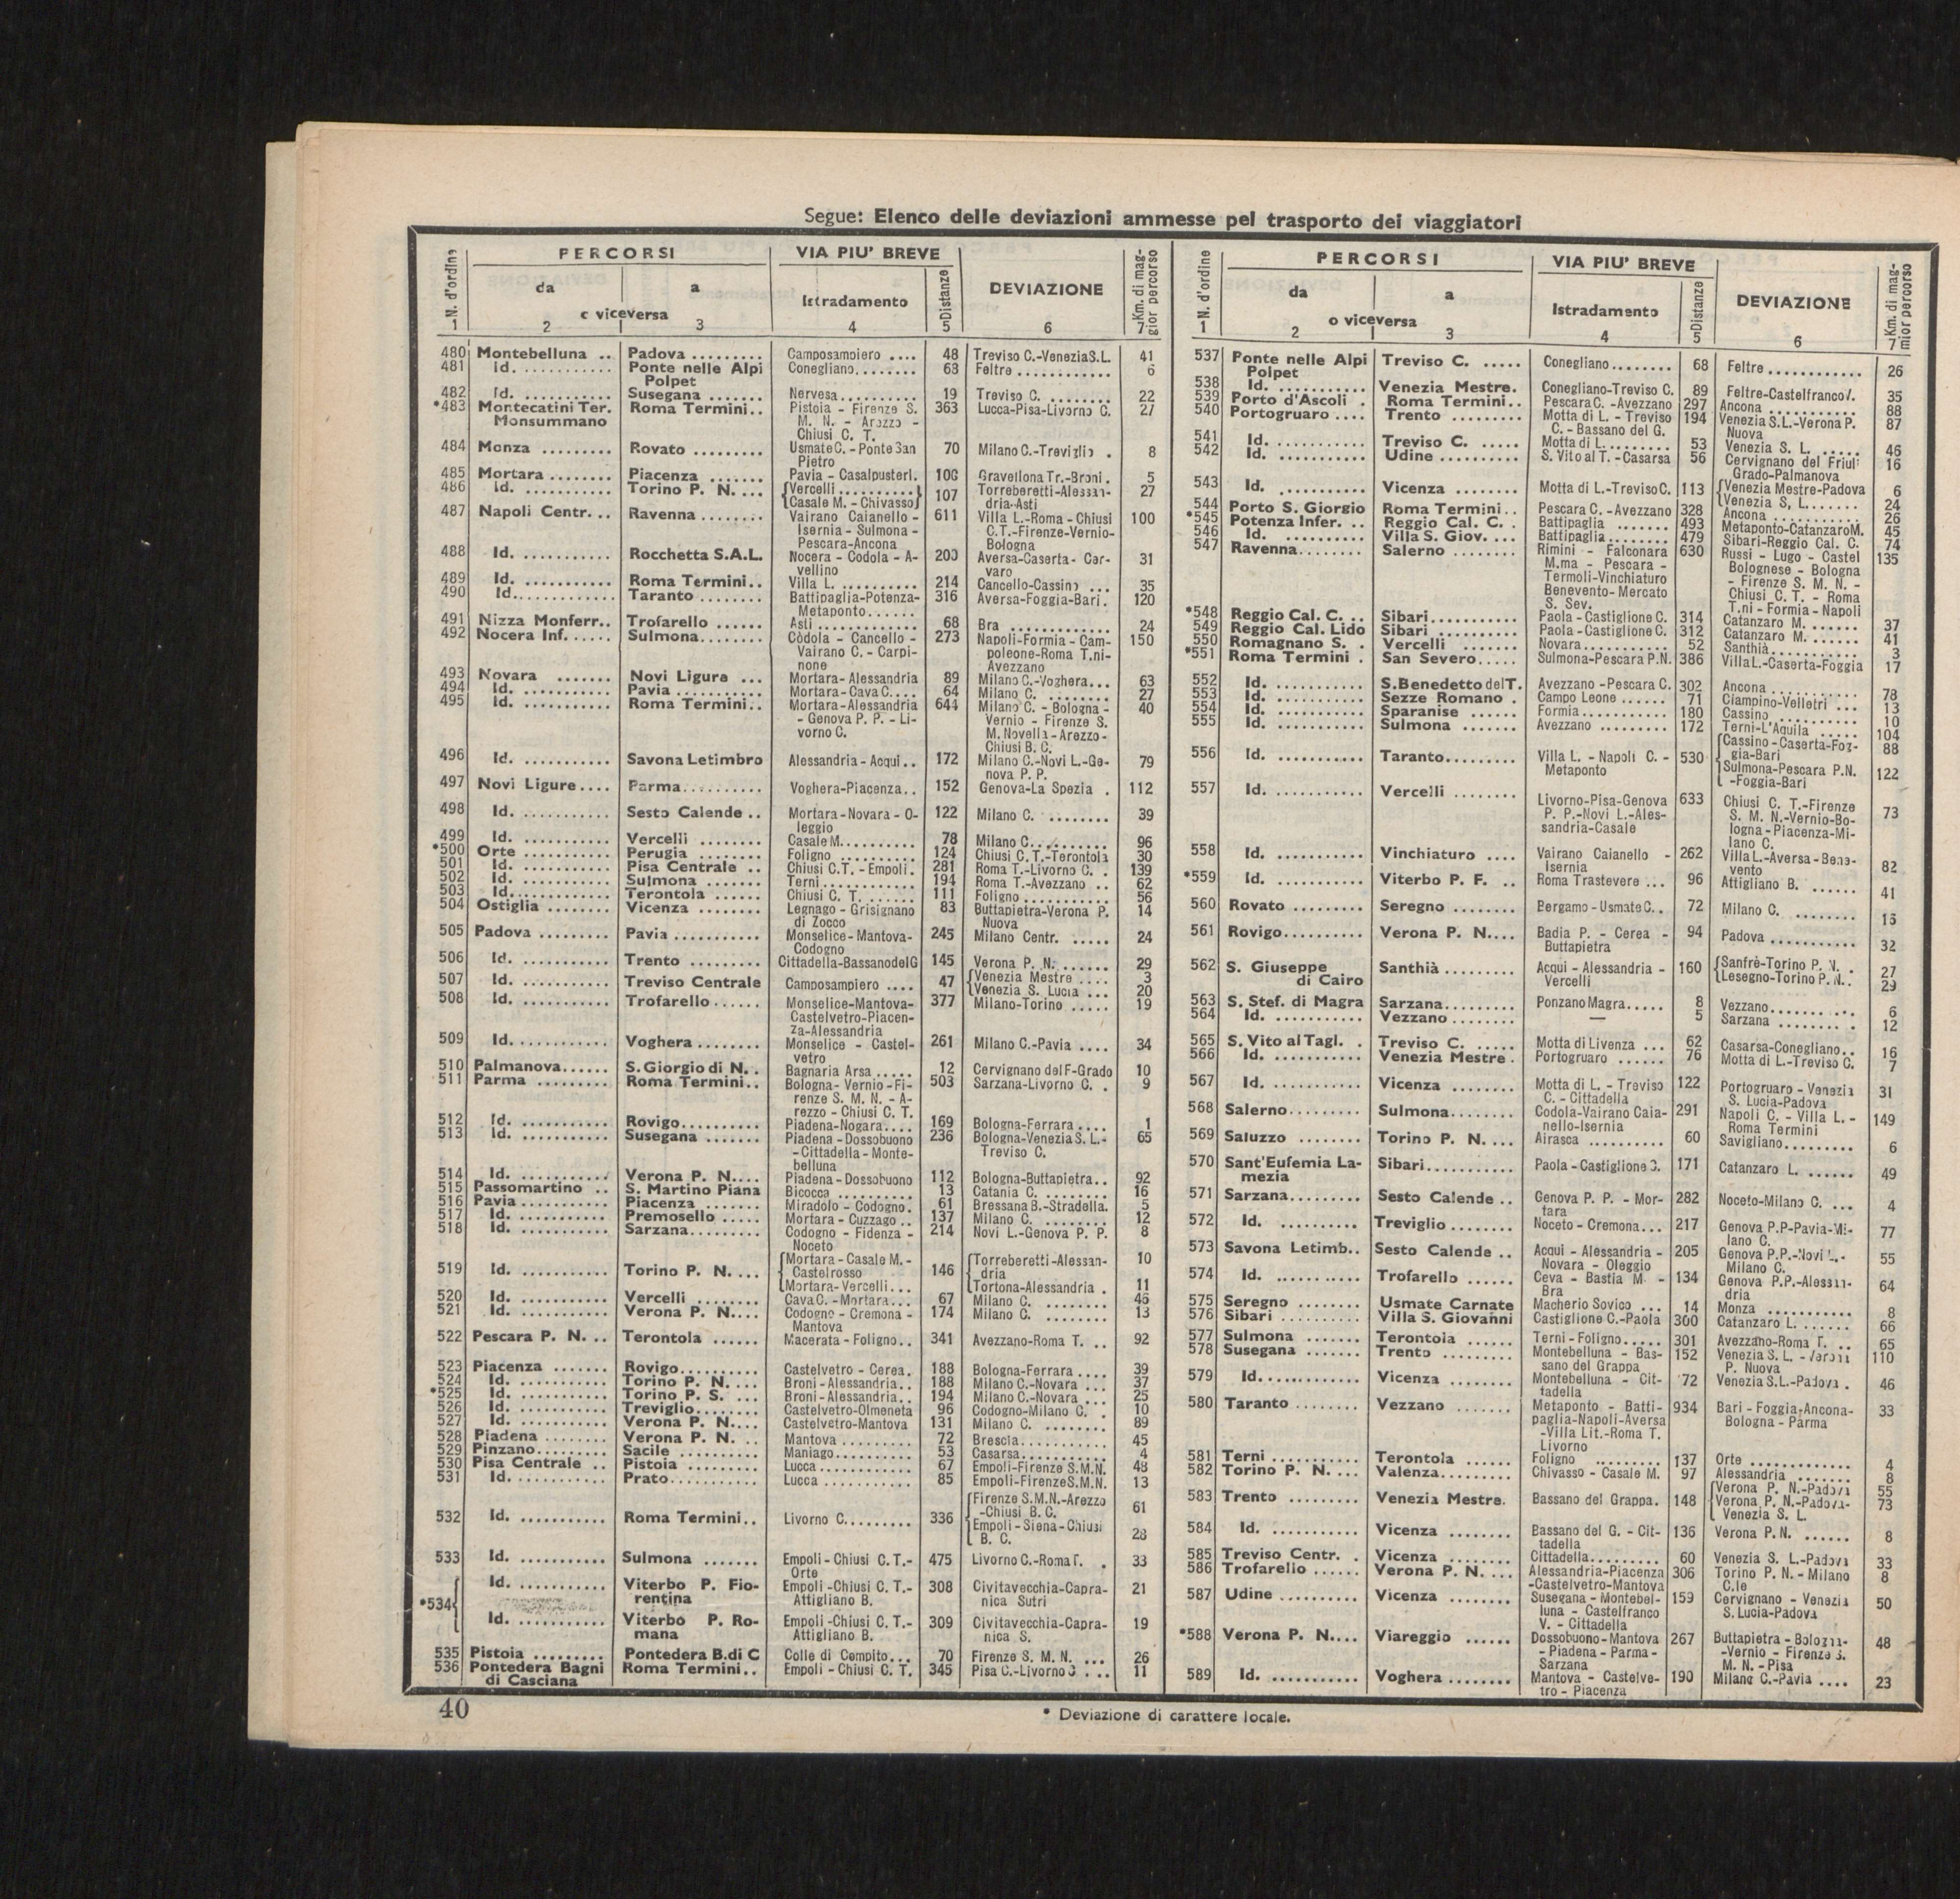 Segue: Elenco delle deviazioni ammesse pel trasporto dei viaggiatori
N. d'ordine PERCORSI VIA PIU' BREVE DEVIAZIONE Km. di maggior percorso
da a Istradamento Distanze
o viceversa
1 2 3 4 5 6 7
480 Montebelluna .. Padova ......... Camposampiero .... 48 Treviso C.-Venezia S.L. 41
481 Id. ........... Ponte nelle Alpi Conegliano........ 63 Feltre ............ 6
Polpet
482 Id. ........... Susegana ....... Nervesa.......... 19 Treviso C. ......... 22
*483 Montecatini Ter. Roma Termini.. Pistoia - Firenze S. 363 Lucca-Pisa-Livorno C. 27
Monsummano M. N. - Arezzo -
Chiusi C. T.
484 Monza ......... Rovato ......... Usmate C. - Ponte San 70 Milano C.-Treviglio . 8
Pietro
485 Mortara ........ Piacenza ....... Pavia - Casalpusterl. 106 Gravellona Tr.-Broni . 5
486 Id. ........... Torino P. N. ... {Vercelli ..........} 107 Torreberetti-Alessan- 27
{Casale M. - Chivasso} dria-Asti
487 Napoli Centr. .. Ravenna ........ Vairano Caianello - 611 Villa L.-Roma - Chiusi 100
Isernia - Sulmona - C.T.-Firenze-Vernio-
Pescara-Ancona Bologna
488 Id. ........... Rocchetta S.A.L. Nocera - Codola - A- 200 Aversa-Caserta- Cer- 31
vellino varo
489 Id. ........... Roma Termini.. Villa L. .......... 214 Cancello-Cassino ... 35
490 Id............. Taranto ........ Battipaglia-Potenza- 316 Aversa-Foggia-Bari. 120
Metaponto......
491 Nizza Monferr.. Trofarello ...... Asti ............. 68 Bra ............. 24
492 Nocera Inf. ..... Sulmona........ Còdola - Cancello - 273 Napoli-Formia - Cam- 150
Vairano C. - Carpi- poleone-Roma T.ni-
none Avezzano
493 Novara ....... Novi Ligure ... Mortara- Alessandria 89 Milano C.-Voghera... 63
494 Id. ........... Pavia ........... Mortara-Cava C.... 64 Milano C. ........ 27
495 Id. ........... Roma Termini.. Mortara-Alessandria 644 Milano C. - Bologna - 40
- Genova P. P. - Li- Vernio - Firenze S.
vorno C. M. Novella - Arezzo -
Chiusi B. C.
496 Id. ........... Savona Letimbro Alessandria - Acqui .. 172 Milano C.-Novi L.-Ge- 79
nova P. P.
497 Novi Ligure.... Parma.......... Voghera-Piacenza.. 152 Genova-La Spezia . 112
498 Id. ........... Sesto Calende .. Mortara - Novara - O- 122 Milano C. ........ 39
leggio
499 Id. ........... Vercelli ........ Casale M.......... 78 Milano C. ......... 96
*500 Orte ........... Perugia ........ Foligno .......... 124 Chiusi C. T.-Terontola 30
501 Id. ........... Pisa Centrale .. Chiusi C.T. - Empoli. 281 Roma T.-Livorno C. . 139
502 Id. ........... Sulmona ....... Terni ............ 194 Roma T.-Avezzano .. 62
503 Id............. Terontola ...... Chiusi C. T. ...... 111 Foligno ........... 56
504 Ostiglia ........ Vicenza ........ Legnago - Grisignano 83 Buttapietra-Verona P. 14
di Zocco Nuova
505 Padova ......... Pavia ........... Monselice - Mantova- 245 Milano Centr. ..... 24
Codogno
506 Id. ........... Trento ......... Cittadella-Bassano del G 145 Verona P. N. ...... 29
507 Id. ........... Treviso Centrale Camposampiero .... 47 {Venezia Mestre .... 3
{Venezia S. Lucia ... 20
508 Id. ........... Trofarello ...... Monselice-Mantova- 377 Milano-Torino ..... 19
Castelvetro-Piacen-
za-Alessandria
509 Id. ........... Voghera ........ Monselice - Castel- 261 Milano C.-Pavia .... 34
vetro
510 Palmanova...... S. Giorgio di N. . Bagnaria Arsa ..... 12 Cervignano del F-Grado 10
511 Parma ......... Roma Termini.. Bologna- Vernio - Fi- 503 Sarzana-Livorno C. . 9
renze S. M. N. - A-
rezzo - Chiusi C. T.
512 Id. ........... Rovigo.......... Piadena-Nogara.... 169 Bologna-Ferrara .... 1
513 Id. ........... Susegana ....... Piadena - Dossobuono 236 Bologna-Venezia S. L.- 65
- Cittadella - Monte- Treviso C.
belluna
514 Id. ........... Verona P. N.... Piadena - Dossobuono 112 Bologna-Buttapietra.. 92
515 Passomartino .. S. Martino Piana Bicocca .......... 13 Catania C. ........ 16
516 Pavia........... Piacenza ....... Miradolo - Codogno. 61 Bressana B.-Stradella. 5
517 Id. ........... Premosello ..... Mortara - Cuzzago .. 137 Milano C. ......... 12
518 Id. ........... Sarzana......... Codogno - Fidenza - 214 Novi L.-Genova P. P. 8
Noceto
519 Id. ........... Torino P. N. ... {Mortara - Casale M. - 146 {Torreberetti-Alessan- 10
Castelrosso dria
{Mortara-Vercelli... {Tortona-Alessandria . 11
520 Id. ........... Vercelli ........ Cava C. - Mortara... 67 Milano C. ........ 46
521 Id. ........... Verona P. N.... Codogno - Cremona - 174 Milano C. ........ 13
Mantova
522 Pescara P. N. .. Terontola ...... Macerata - Foligno.. 341 Avezzano-Roma T. .. 92
523 Piacenza ....... Rovigo.......... Castelvetro - Cerea. 188 Bologna-Ferrara .... 39
524 Id. ........... Torino P. N. ... Broni - Alessandria.. 188 Milano C.-Novara ... 37
*525 Id. ........... Torino P. S. ... Broni - Alessandria.. 194 Milano C.-Novara ... 25
526 Id. ........... Treviglio........ Castelvetro-Olmeneta 96 Codogno-Milano C. . 10
527 Id. ........... Verona P. N.... Castelvetro-Mantova 131 Milano C. ........ 89
528 Piadena ........ Verona P. N. .. Mantova ......... 72 Brescia........... 45
529 Pinzano......... Sacile .......... Maniago.......... 53 Casarsa........... 4
530 Pisa Centrale .. Pistoia ......... Lucca ............ 67 Empoli-Firenze S.M.N. 48
531 Id. ........... Prato........... Lucca ........... 85 Empoli-Firenze S.M.N. 13
532 Id. ........... Roma Termini.. Livorno C......... 336 {Firenze S.M.N.-Arezzo 61
-Chiusi B. C.
{Empoli - Siena - Chiusi 28
B. C.
533 Id. ........... Sulmona ....... Empoli - Chiusi C. T.- 475 Livorno C.-Roma T. . 33
Orte
*534{ Id. ........... Viterbo P. Fio- Empoli -Chiusi C. T.- 308 Civitavecchia-Capra- 21
rentina Attigliano B. nica Sutri
Id. ........... Viterbo P. Ro- Empoli -Chiusi C. T.- 309 Civitavecchia-Capra- 19
mana Attigliano B. nica S.
535 Pistoia ......... Pontedera B. di C Colle di Compito... 70 Firenze S. M. N. ... 26
536 Pontedera Bagni Roma Termini.. Empoli - Chiusi C. T. 345 Pisa C.-Livorno C . .. 11
di Casciana
N. d'ordine PERCORSI VIA PIU' BREVE DEVIAZIONE Km. di maggior percorso
da a Istradamento Distanze
o viceversa
1 2 3 4 5 6 7
537 Ponte nelle Alpi Treviso C. ..... Conegliano........ 68 Feltre ............ 26
Polpet
538 Id. ........... Venezia Mestre. Conegliano-Treviso C. 89 Feltre-Castelfranco V. 35
539 Porto d'Ascoli . Roma Termini.. Pescara C. -Avezzano 297 Ancona ........... 88
540 Portogruaro .... Trento ......... Motta di L. - Treviso 194 Venezia S.L.-Verona P. 87
C. - Bassano del G. Nuova
541 Id. ........... Treviso C. ..... Motta di L......... 53 Venezia S. L. ...... 46
542 Id. ........... Udine .......... S. Vito al T. - Casarsa 56 Cervignano del Friul- 16
Grado-Palmanova
543 Id. ........... Vicenza ........ Motta di L.-Treviso C. 113 {Venezia Mestre-Padova 6
{Venezia S, L....... 24
544 Porto S. Giorgio Roma Termini.. Pescara C. -Avezzano 328 Ancona ........... 26
*545 Potenza Infer. .. Reggio Cal. C. . Battipaglia ....... 493 Metaponto-Catanzaro M. 45
546 Id. .......... Villa S. Giov. ... Battipaglia ........ 479 Sibari-Reggio Cal. C. 74
547 Ravenna........ Salerno ........ Rimini - Falconara 630 Russi - Lugo - Castel 135
M.ma - Pescara - Bolognese - Bologna
Termoli-Vinchiaturo - Firenze S. M. N. -
Benevento-Mercato Chiusi C. T. - Roma
S. Sev. T.ni - Formia - Napoli
*548 Reggio Cal. C. .. Sibari........... Paola - Castiglione C. 314 Catanzaro M. ...... 37
549 Reggio Cal. Lido Sibari .......... Paola - Castiglione C. 312 Catanzaro M. ...... 41
550 Romagnano S. . Vercelli ....... Novara........... 52 Santhià ........... 3
*551 Roma Termini . San Severo..... Sulmona-Pescara P.N. 386 Villa L.-Caserta-Foggia 17
552 Id. ........... S. Benedetto del T. Avezzano - Pescara C. 302 Ancona ........... 78
553 Id. ........... Sezze Romano . Campo Leone ...... 71 Ciampino-Velletri ... 13
554 Id. ........... Sparanise ...... Formia........... 180 Cassino .......... 10
555 Id. ........... Sulmona ....... Avezzano ......... 172 Terni-L'Aquila ..... 104
556 Id. ........... Taranto......... Villa L. - Napoli C. - 530 {Cassino - Caserta-Fog- 88
Metaponto gia-Bari
{Sulmona-Pescara P.N. 122
-Foggia-Bari
557 Id. ........... Vercelli ........ Livorno-Pisa-Genova 633 Chiusi C. T.-Firenze 73
P. P.-Novi L.-Ales- S. M. N.-Vernio-Bo-
sandria-Casale logna - Piacenza-Mi-
lano C.
558 Id. ........... Vinchiaturo .... Vairano Caianello - 262 Villa L.-Aversa - Bene- 82
Isernia vento
*559 Id. ........... Viterbo P. F. .. Roma Trastevere ... 96 Attigliano B. ...... 41
560 Rovato ......... Seregno ........ Bergamo - Usmate C. . 72 Milano C. ........ 15
561 Rovigo.......... Verona P. N.... Badia P. - Cerea - 94 Padova ........... 32
Buttapietra
562 S. Giuseppe Santhià ......... Acqui - Alessandria - 160 {Sanfrè-Torino P. N. . 27
di Cairo Vercelli {Lesegno-Torino P. N.. 29
563 S. Stef. di Magra Sarzana......... Ponzano Magra..... 8 Vezzano.......... 6
564 Id. ........... Vezzano........ — 5 Sarzana ......... 12
565 S. Vito al Tagl. . Treviso C. ..... Motta di Livenza ... 62 Casarsa-Conegliano.. 16
566 Id. ........... Venezia Mestre . Portogruaro ...... 76 Motta di L.-Treviso C. 7
567 Id. ........... Vicenza ........ Motta di L. - Treviso 122 Portogruaro - Venezia 31
C. - Cittadella S. Lucia-Padova
568 Salerno......... Sulmona........ Codola-Vairano Caia- 291 Napoli C. - Villa L. - 149
nello-Isernia Roma Termini
569 Saluzzo ........ Torino P. N. ... Airasca .......... 60 Savigliano......... 6
570 Sant'Eufemia La- Sibari........... Paola - Castiglione C. 171 Catanzaro L. ...... 49
mezia
571 Sarzana......... Sesto Calende .. Genova P. P. - Mor- 282 Noceto-Milano C. ... 4
tara
572 Id. .......... Treviglio........ Noceto - Cremona... 217 Genova P.P-Pavia-Mi- 77
lano C.
573 Savona Letimb.. Sesto Calende .. Acqui - Alessandria - 205 Genova P.P.-Novi L.- 55
Novara - Oleggio Milano C.
574 Id. ........... Trofarello ...... Ceva - Bastia M - 134 Genova P.P.-Alessan- 64
Bra dria
575 Seregno ........ Usmate Carnate Macherio Sovico ... 14 Monza ........... 8
576 Sibari .......... Villa S. Giovanni Castiglione C.-Paola 300 Catanzaro L. ....... 66
577 Sulmona ....... Terontola ...... Terni - Foligno..... 301 Avezzano-Roma T. .. 65
578 Susegana ....... Trento ......... Montebelluna - Bas- 152 Venezia S. L. - Verona 110
sano del Grappa P. Nuova
579 Id............. Vicenza ........ Montebelluna - Cit- 72 Venezia S.L.-Padova . 46
tadella
580 Taranto ........ Vezzano ....... Metaponto - Batti- 934 Bari - Foggia-Ancona- 33
paglia-Napoli-Aversa Bologna - Parma
-Villa Lit.-Roma T.
Livorno
581 Terni ........... Terontola ...... Foligno ......... 137 Orte ............. 4
582 Torino P. N. ... Valenza......... Chivasso - Casale M. 97 Alessandria ....... 8
583 Trento ......... Venezia Mestre. Bassano del Grappa. 148 {Verona P. N.-Padova 55
{Verona P. N.-Padova- 73
Venezia S. L.
584 Id. ........... Vicenza ........ Bassano del G. - Cit- 136 Verona P.N. ...... 8
tadella
585 Treviso Centr. . Vicenza ........ Cittadella......... 60 Venezia S. L.-Padova 33
586 Trofarello ...... Verona P. N. ... Alessandria-Piacenza 306 Torino P. N. - Milano 8
-Castelvetro-Mantova C.le
587 Udine .......... Vicenza ........ Susegana - Montebel- 159 Cervignano - Venezia 50
luna - Castelfranco S. Lucia-Padova
V. - Cittadella
*588 Verona P. N.... Viareggio ...... Dossobuono - Mantova 267 Buttapietra - Bologna- 48
- Piadena - Parma - -Vernio - Firenze S.
Sarzana M. N. - Pisa
589 Id. ........... Voghera ........ Mantova - Castelve- 190 Milano C.-Pavia .... 23
tro - Piacenza
40
* Deviazione di carattere locale.